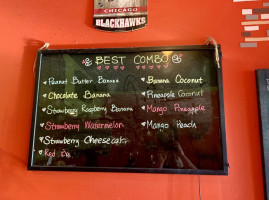 CHICAGO
BLACKHAWKS
BEST COMBO
Peanut Butter Banana
Chocolate Banana
Strawberry Raspberry Banana
Strawberry Watermelon
Strawberry Cheesecake
Red
Banana Coconut
Pineapple Coconut
Mango Pineapple
Mango Peach